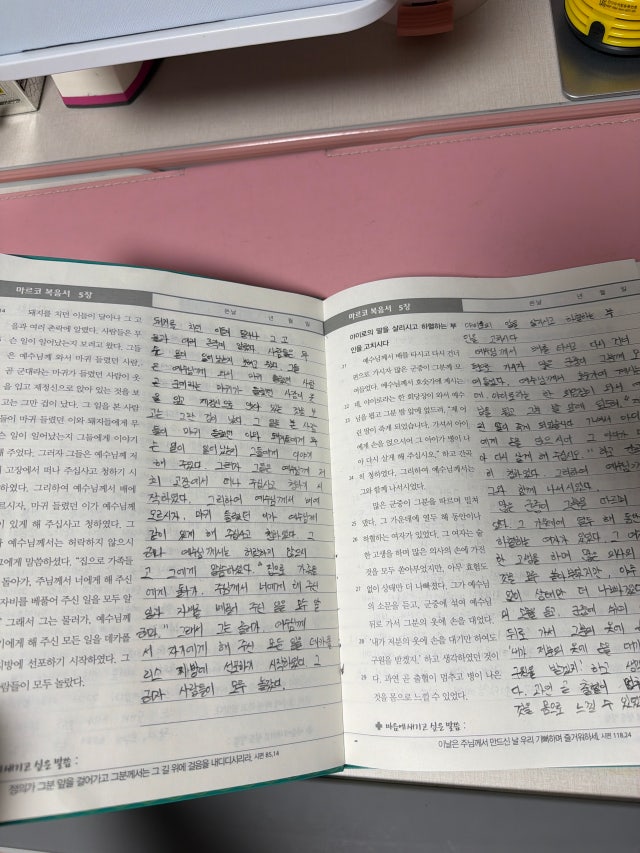 마르코 복음서 5장
14
돼지를 치던 이들이 달아나 그 고
을과 여러 촌락에 알렸다. 사람들은 무
슨 일이 일어났는지 보려고 왔다. 그들
은 예수님께 와서 마귀 들렸던 사람,
곧 군대라는 마귀가 들렸던 사람이 옷
을 입고 제정신으로 앉아 있는 것을 보
고는 그만 겁이 났다. 그 일을 본 사람
들이 마귀 들렸던 이와 돼지들에게 무
슨 일이 일어났는지 그들에게 이야기
해 주었다. 그러자 그들은 예수님께 저
희 고장에서 떠나 주십사고 청하기 시
작하였다. 그리하여 예수님께서 배에
오르시자, 마귀 들렸던 이가 예수님께
같이 있게 해 주십사고 청하였다. 그
러나 예수님께서는 허락하지 않으시
고 그에게 말씀하셨다. “집으로 가족들
에게 돌아가, 주님께서 너에게 해 주신
일과 자비를 베풀어 주신 일을 모두 알
려라.” 그래서 그는 물러가, 예수님께
서 자기에게 해 주신 모든 일을 데카폴
리스 지방에 선포하기 시작하였다. 그
러자 사람들이 모두 놀랐다.
은날 년 월 일
돼지를 치던 이들이 달아나 그 고
을과 여러 촌락에 알렸다. 사람들은 무
슨 일이 일어났는지 보려고 왔다. 그들
은 예수님께 와서 마귀 들렸던 사람
곧 군대라는 마귀가 들렸던 사람이 옷
을 입고 제정신으로 앉아 있는 것을 보
고는 그만 겁이 났다 그 일을 본 사람
들이 마귀 들렸던 이와 돼지들에게 무
슨 일이 일어났는지 그들에게 이야기
해 주었다. 그러자 그들은 예수님께 저
희 고장에서 떠나 주십사고 청하기 시
작하였다. 그리하여 예수님께서 배에
오르시자, 마귀 들렸던 이가 예수님께
같이 있게 해 주십사고 청하였다. 그
러나 예수님께서는 허락하지 않으시
고 그에게 말씀하셨다. “집으로 가족들
에게 돌아가, 주님께서 너에게 해 주신
일과 자비를 베풀어 주신 일을 모두 알
려라.” 그래서 그는 물러가 예수님께
서 자기에게 해 주신 모든 일을 데카폴
리스 지방에 선포하기 시작하였다. 그
러자 사람들이 모두 놀랐다.
새기고 싶은 말씀 :
정의가 그분 앞을 걸어가고 그분께서는 그 길 위에 걸음을 내디디시리라. 시편 85,14
마르코 복음서 5장
아이로의 딸을 살리시고 하혈하는 부
인을 고치시다
21 예수님께서 배를 타시고 다시 건너
편으로 가시자 많은 군중이 그분께 모
여들었다. 예수님께서 호숫가에 계시는
22 데, 아이로라는 한 회당장이 와서 예수
23 님을 뵙고 그분 발 앞에 엎드려, “제 어
린 딸이 죽게 되었습니다. 가셔서 아이
에게 손을 얹으시어 그 아이가 병이 나
아 다시 살게 해 주십시오.” 하고 간곡
24 히 청하였다. 그리하여 예수님께서는
그와 함께 나서시었다.
많은 군중이 그분을 따르며 밀쳐
25 댔다. 그 가운데에 열두 해 동안이나
26 하혈하는 여자가 있었다. 그 여자는 숱
한 고생을 하며 많은 의사의 손에 가진
것을 모두 쏟아부었지만, 아무 효험도
27 없이 상태만 더 나빠졌다. 그가 예수님
의 소문을 듣고, 군중에 섞여 예수님
뒤로 가서 그분의 옷에 손을 대었다.
28 ‘내가 저분의 옷에 손을 대기만 하여도
구원을 받겠지.’ 하고 생각하였던 것이
29 다. 과연 곧 출혈이 멈추고 병이 나은
것을 몸으로 느낄 수 있었다.
은날 년 월 일
아이로의 딸을 살리시고 하혈하는 부
인을 고치시다
예수님께서 배를 타시고 다시 건너
편으로 가시자 많은 군중이 그분께 모
여들었다. 예수님께서 호숫가에 계시는
데, 아이로라는 한 회당장이 와서 예수
님을 뵙고 그분 발 앞에 엎드려, “제
린 딸이 죽게 되었습니다. 가셔서 아이
에게 손을 얹으시어 그 아이가
아 다시 살게 해 주십시오.” 하고 간곡
히 청하였다. 그리하여 예수님께서
그와 함께 나서시었다.
많은 군중이 그분을 따르며
댔다. 그 가운데에 열두 해 동안
하혈하는 여자가 있었다. 그 여
한 고생을 하며 많은 의사의
것을 모두 쏟아부었지만, 아무
없이 상태만 더 나빠졌다.
의 소문을 듣고, 군중에 섞여
뒤로 가서 그분의 옷에
‘내가 저분의 옷에 손을 대기
구원을 받겠지.’ 하고 생각
다. 과연 곧 출혈이 멈추
것을 몸으로 느낄 수 있었
마음에 새기고 싶은 말씀 :
이날은 주님께서 만드신 날 우리 기뻐하며 즐거워하세. 시편 118,24